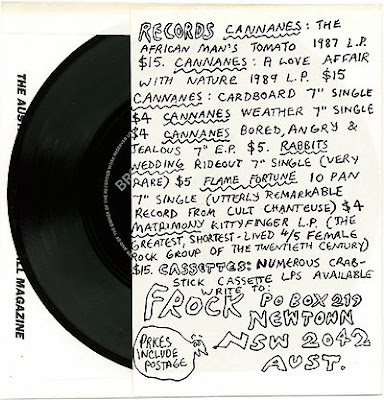 RECORDS CANNANES: THE
AFRICAN MAN'S TOMATO 1987 L.P.
$15. CANNANES: A LOVE AFFAIR
WITH NATURE 1989 L.P. $15
CANNANES: CARDBOARD 7" SINGLE
$4 CANNANES WEATHER 7" SINGLE
$4 CANNANES BORED, ANGRY &
JEALOUS 7" E.P. $5. RABBITS
WEDDING RIDEOUT 7" SINGLE (VERY
RARE) $5 FLAME FORTUNE 10 PAN
7" SINGLE (UTTERLY REMARKABLE
RECORD FROM CULT CHANTEUSE) $4
MATRIMONY KITTYFINGER L.P. (THE
GREATEST, SHORTEST-LIVED 4/5 FEMALE
ROCK GROUP OF THE TWENTIETH CENTURY)
$15. CASSETTES: NUMEROUS CRAB-
STICK CASSETTE LPS AVAILABLE
WRITE TO:
FROCK PO BOX 219
NEWTOWN
NSW 2042
AUST.
PRICES
INCLUDE
POSTAGE
THE AUST
LL MAGAZINE